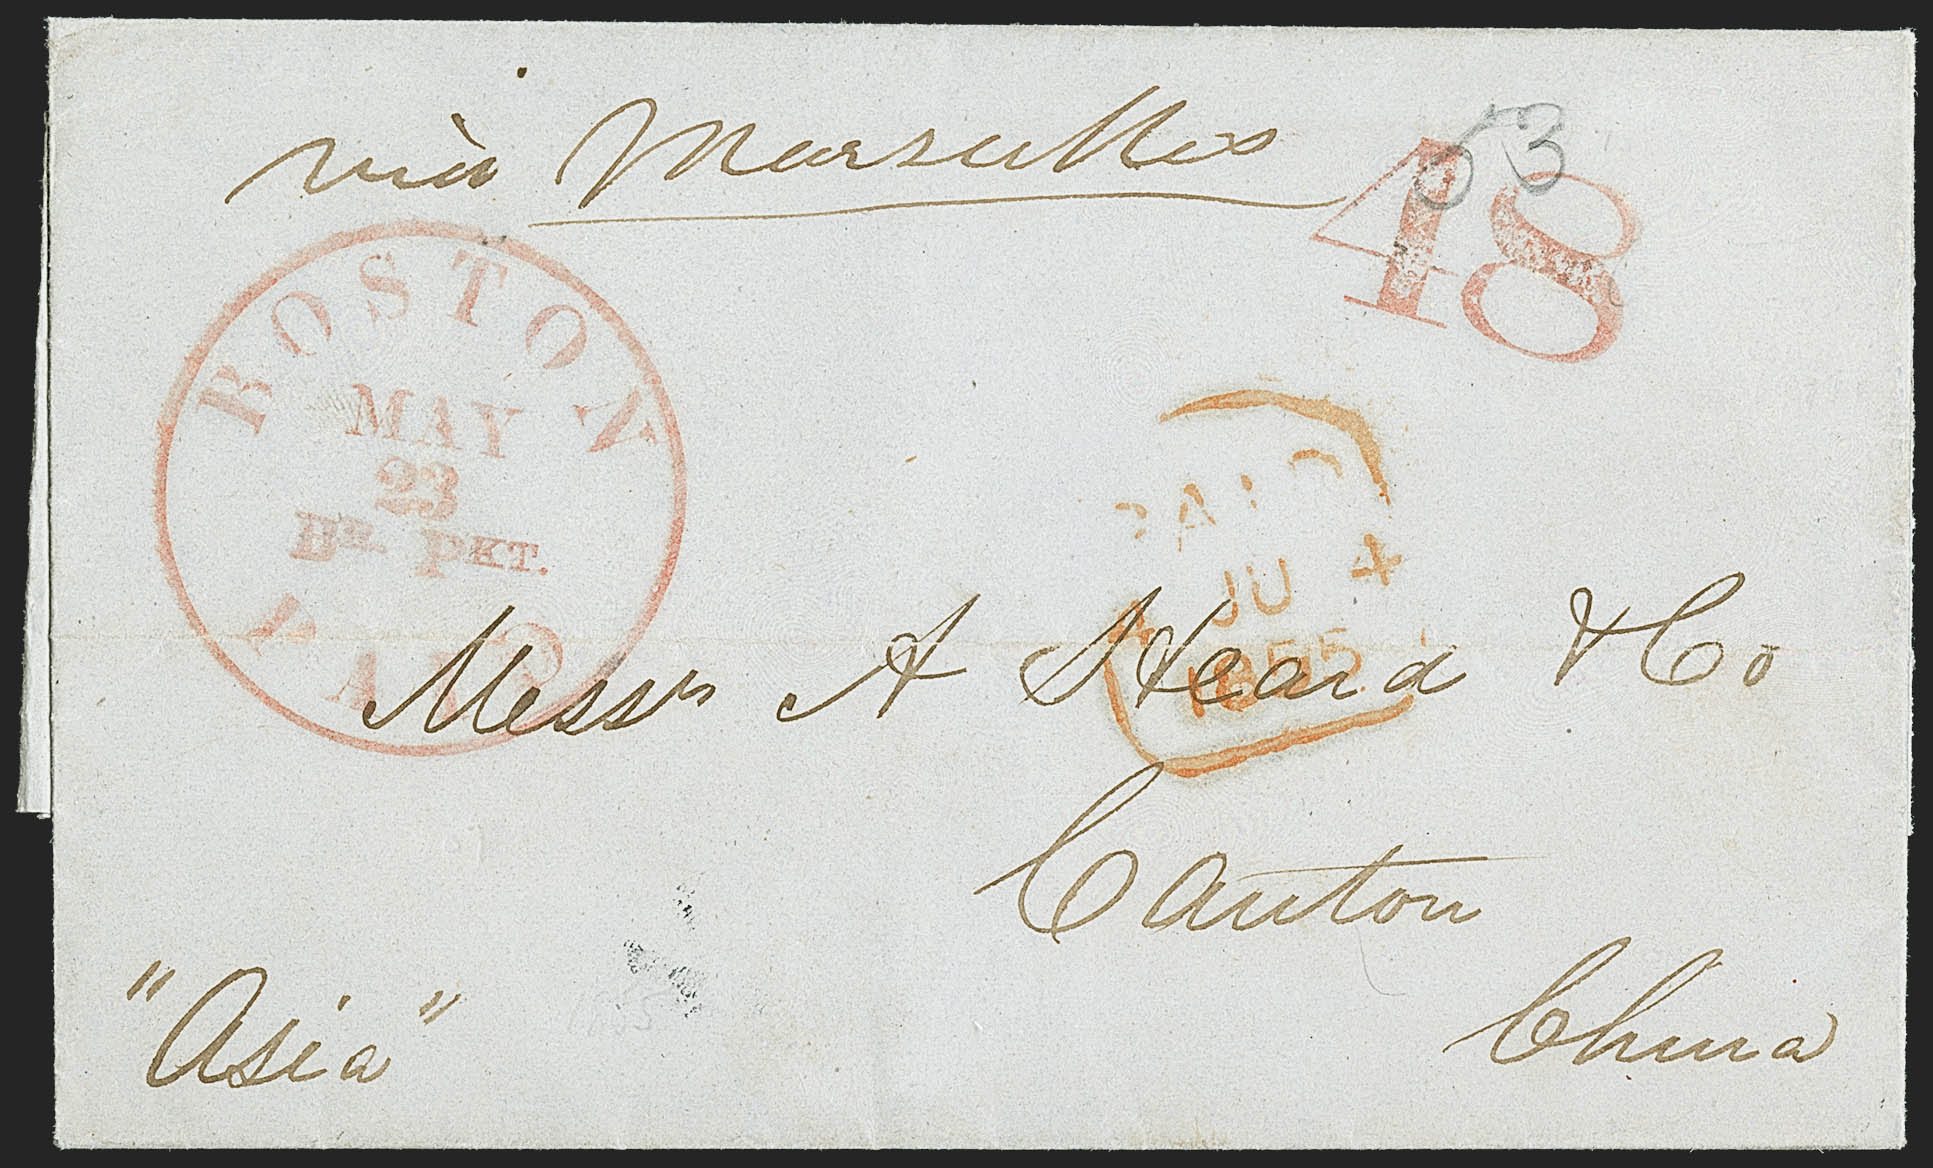 via Marseilles
63
48
BOSTON
MAY
23
Br. PKT.
PAID
PAID
JU 4
1855
Messrs A Heard & Co
Canton
China
"Asia"